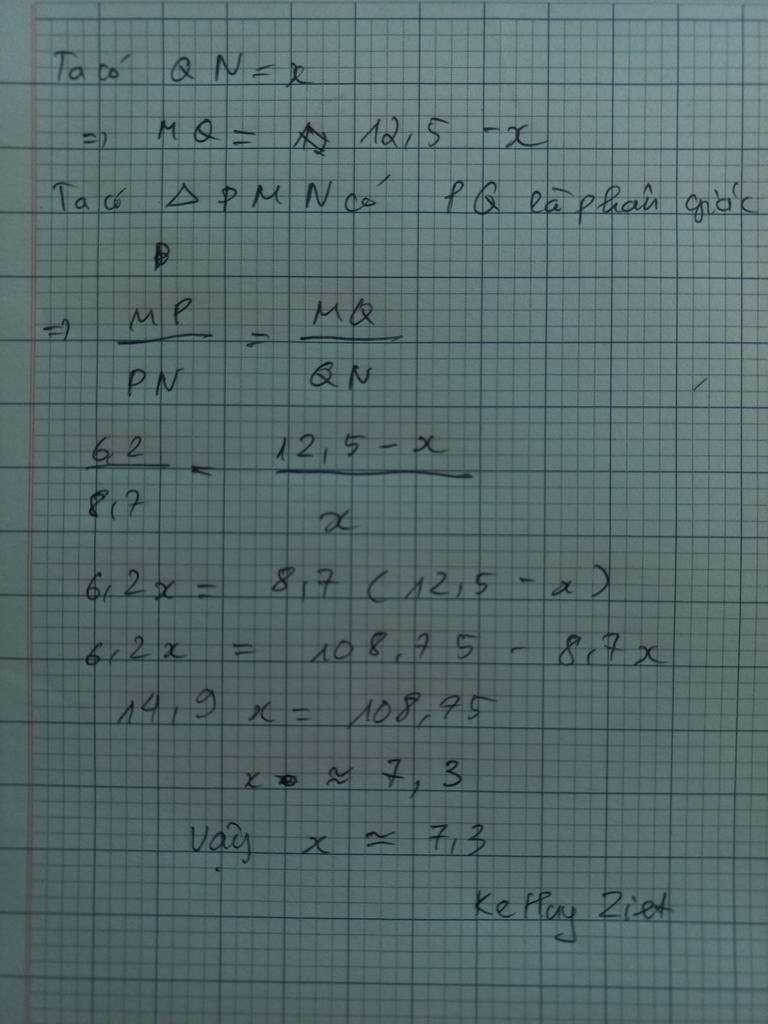 Ta có QN = x
=> MQ = 12,5 - x
Ta có △PMN có PQ là phân giác
=> MP / PN = MQ / QN
6,2 / 8,7 = 12,5 - x / x
6,2x = 8,7 (12,5 - x)
6,2x = 108,75 - 8,7x
14,9 x = 108,75
x ≈ 7,3
Vậy x ≈ 7,3
Ke Huy Ziet